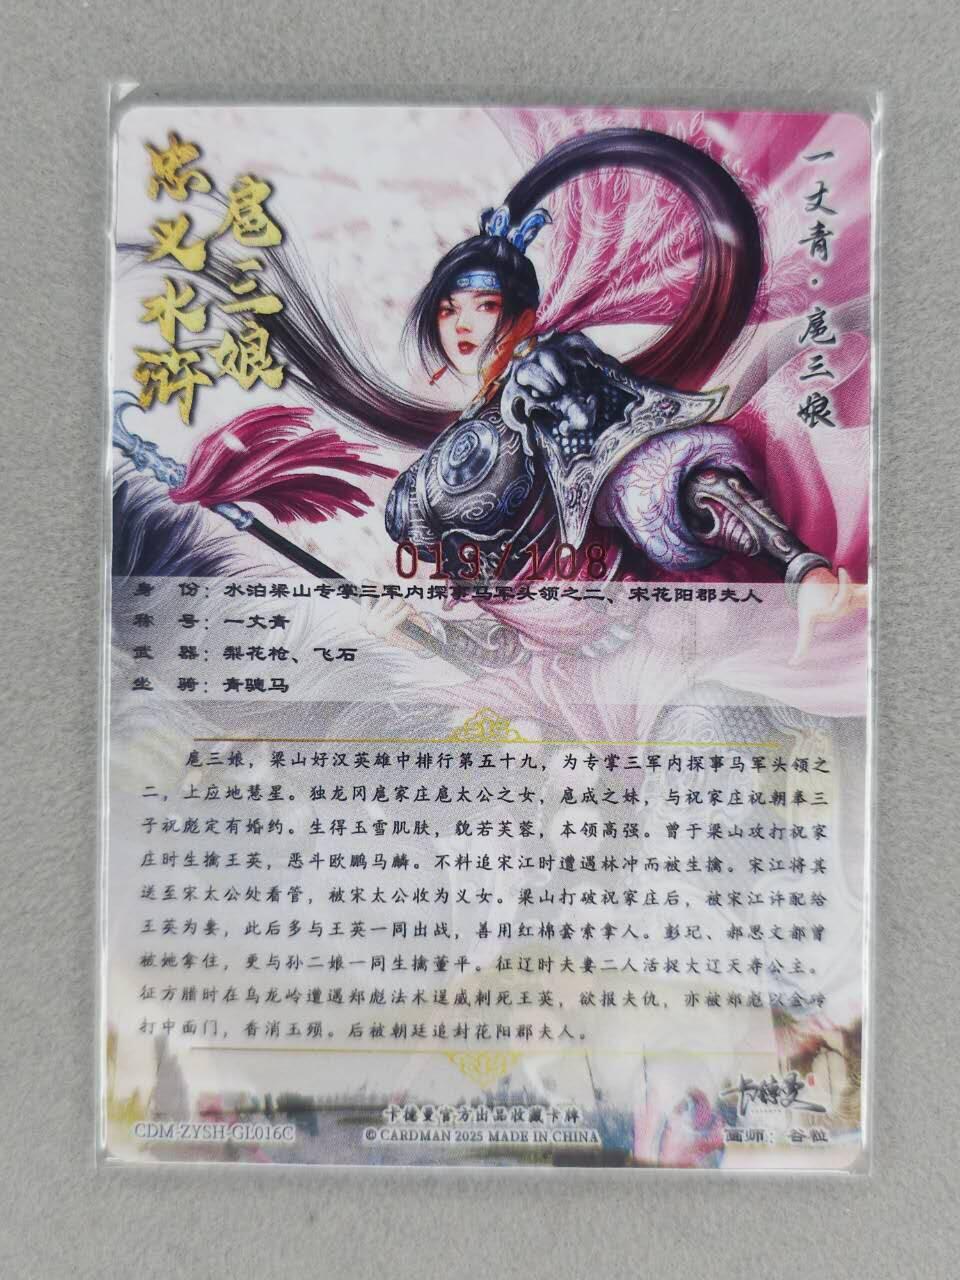 忠义水浒
扈三娘
一丈青·扈三娘
019/108
身 份：水泊梁山专掌三军内探事马军头领之二、宋花阳郡夫人
称 号：一丈青
武 器：梨花枪、飞石
坐 骑：青骢马
扈三娘，梁山好汉英雄中排行第五十九，为专掌三军内探事马军头领之
二，上应地慧星。独龙冈扈家庄扈太公之女，扈成之妹，与祝家庄祝朝奉三
子祝彪定有婚约。生得玉雪肌肤，貌若芙蓉，本领高强。曾于梁山攻打祝家
庄时生擒王英，恶斗欧鹏马麟。不料追宋江时遭遇林冲而被生擒。宋江将其
送至宋太公处看管，被宋太公收为义女。梁山打破祝家庄后，被宋江许配给
王英为妻，此后多与王英一同出战，善用红棉套索拿人。彭玘、郝思文都曾
被她拿住，更与孙二娘一同生擒董平。征辽时夫妻二人活捉大辽天寿公主。
征方腊时在乌龙岭遭遇郑彪法术逞威刺死王英，欲报夫仇，亦被郑彪以金砖
打中面门，香消玉殒。后被朝廷追封花阳郡夫人。
卡德曼
卡德曼官方出品收藏卡牌
CDM-ZYSH-GL016C
© CARDMAN 2025 MADE IN CHINA
画师：谷粒